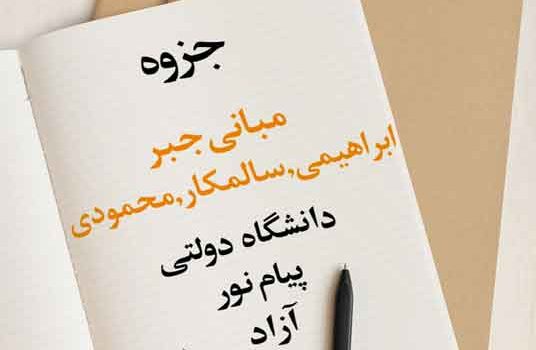 جزوه
مبانی جبر
ابراهیمی,سالمکار,محمودی
دانشگاه دولتی
پیام نور
آزاد